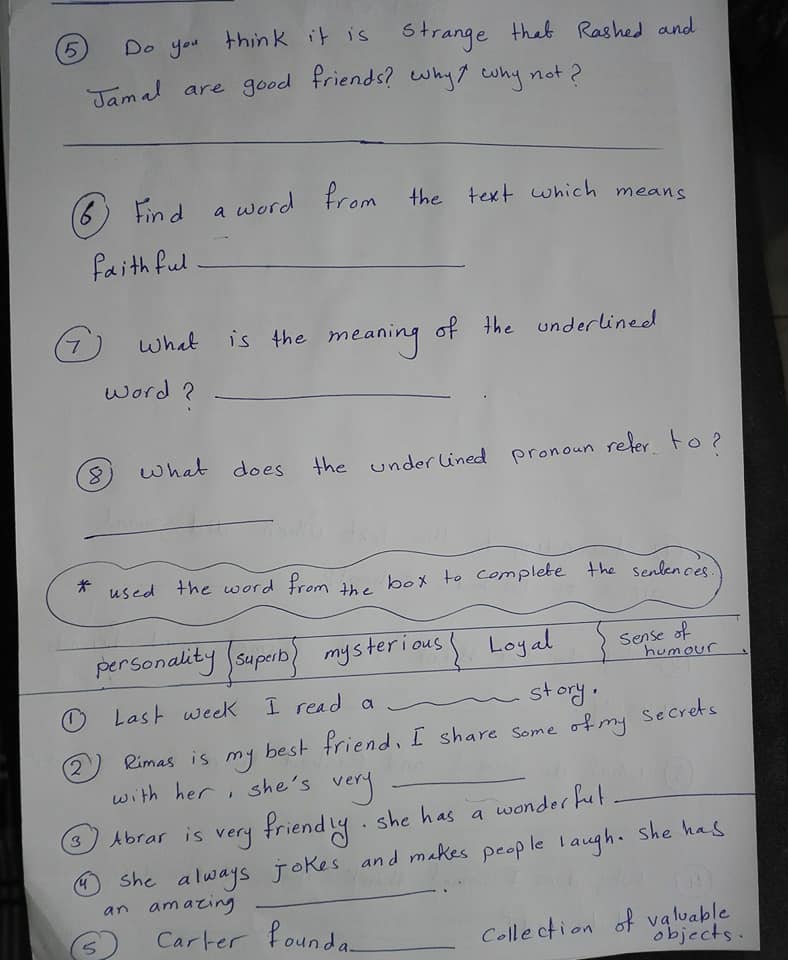 5 Do you think it is strange that Rashed and
Jamal are good friends? why? why not?
6 Find a word from the text which means
faithful
7 what is the meaning of the underlined
word?
8 what does the underlined pronoun refer to?
* used the word from the box to complete the sentences.
personality superb mysterious Loyal sense of humour
1 Last week I read a story.
2 Rimas is my best friend, I share some of my secrets
with her, she's very
3 Abrar is very friendly. she has a wonderful
4 She always jokes and makes people laugh. she has
an amazing .
5 Carter found a collection of valuable objects.